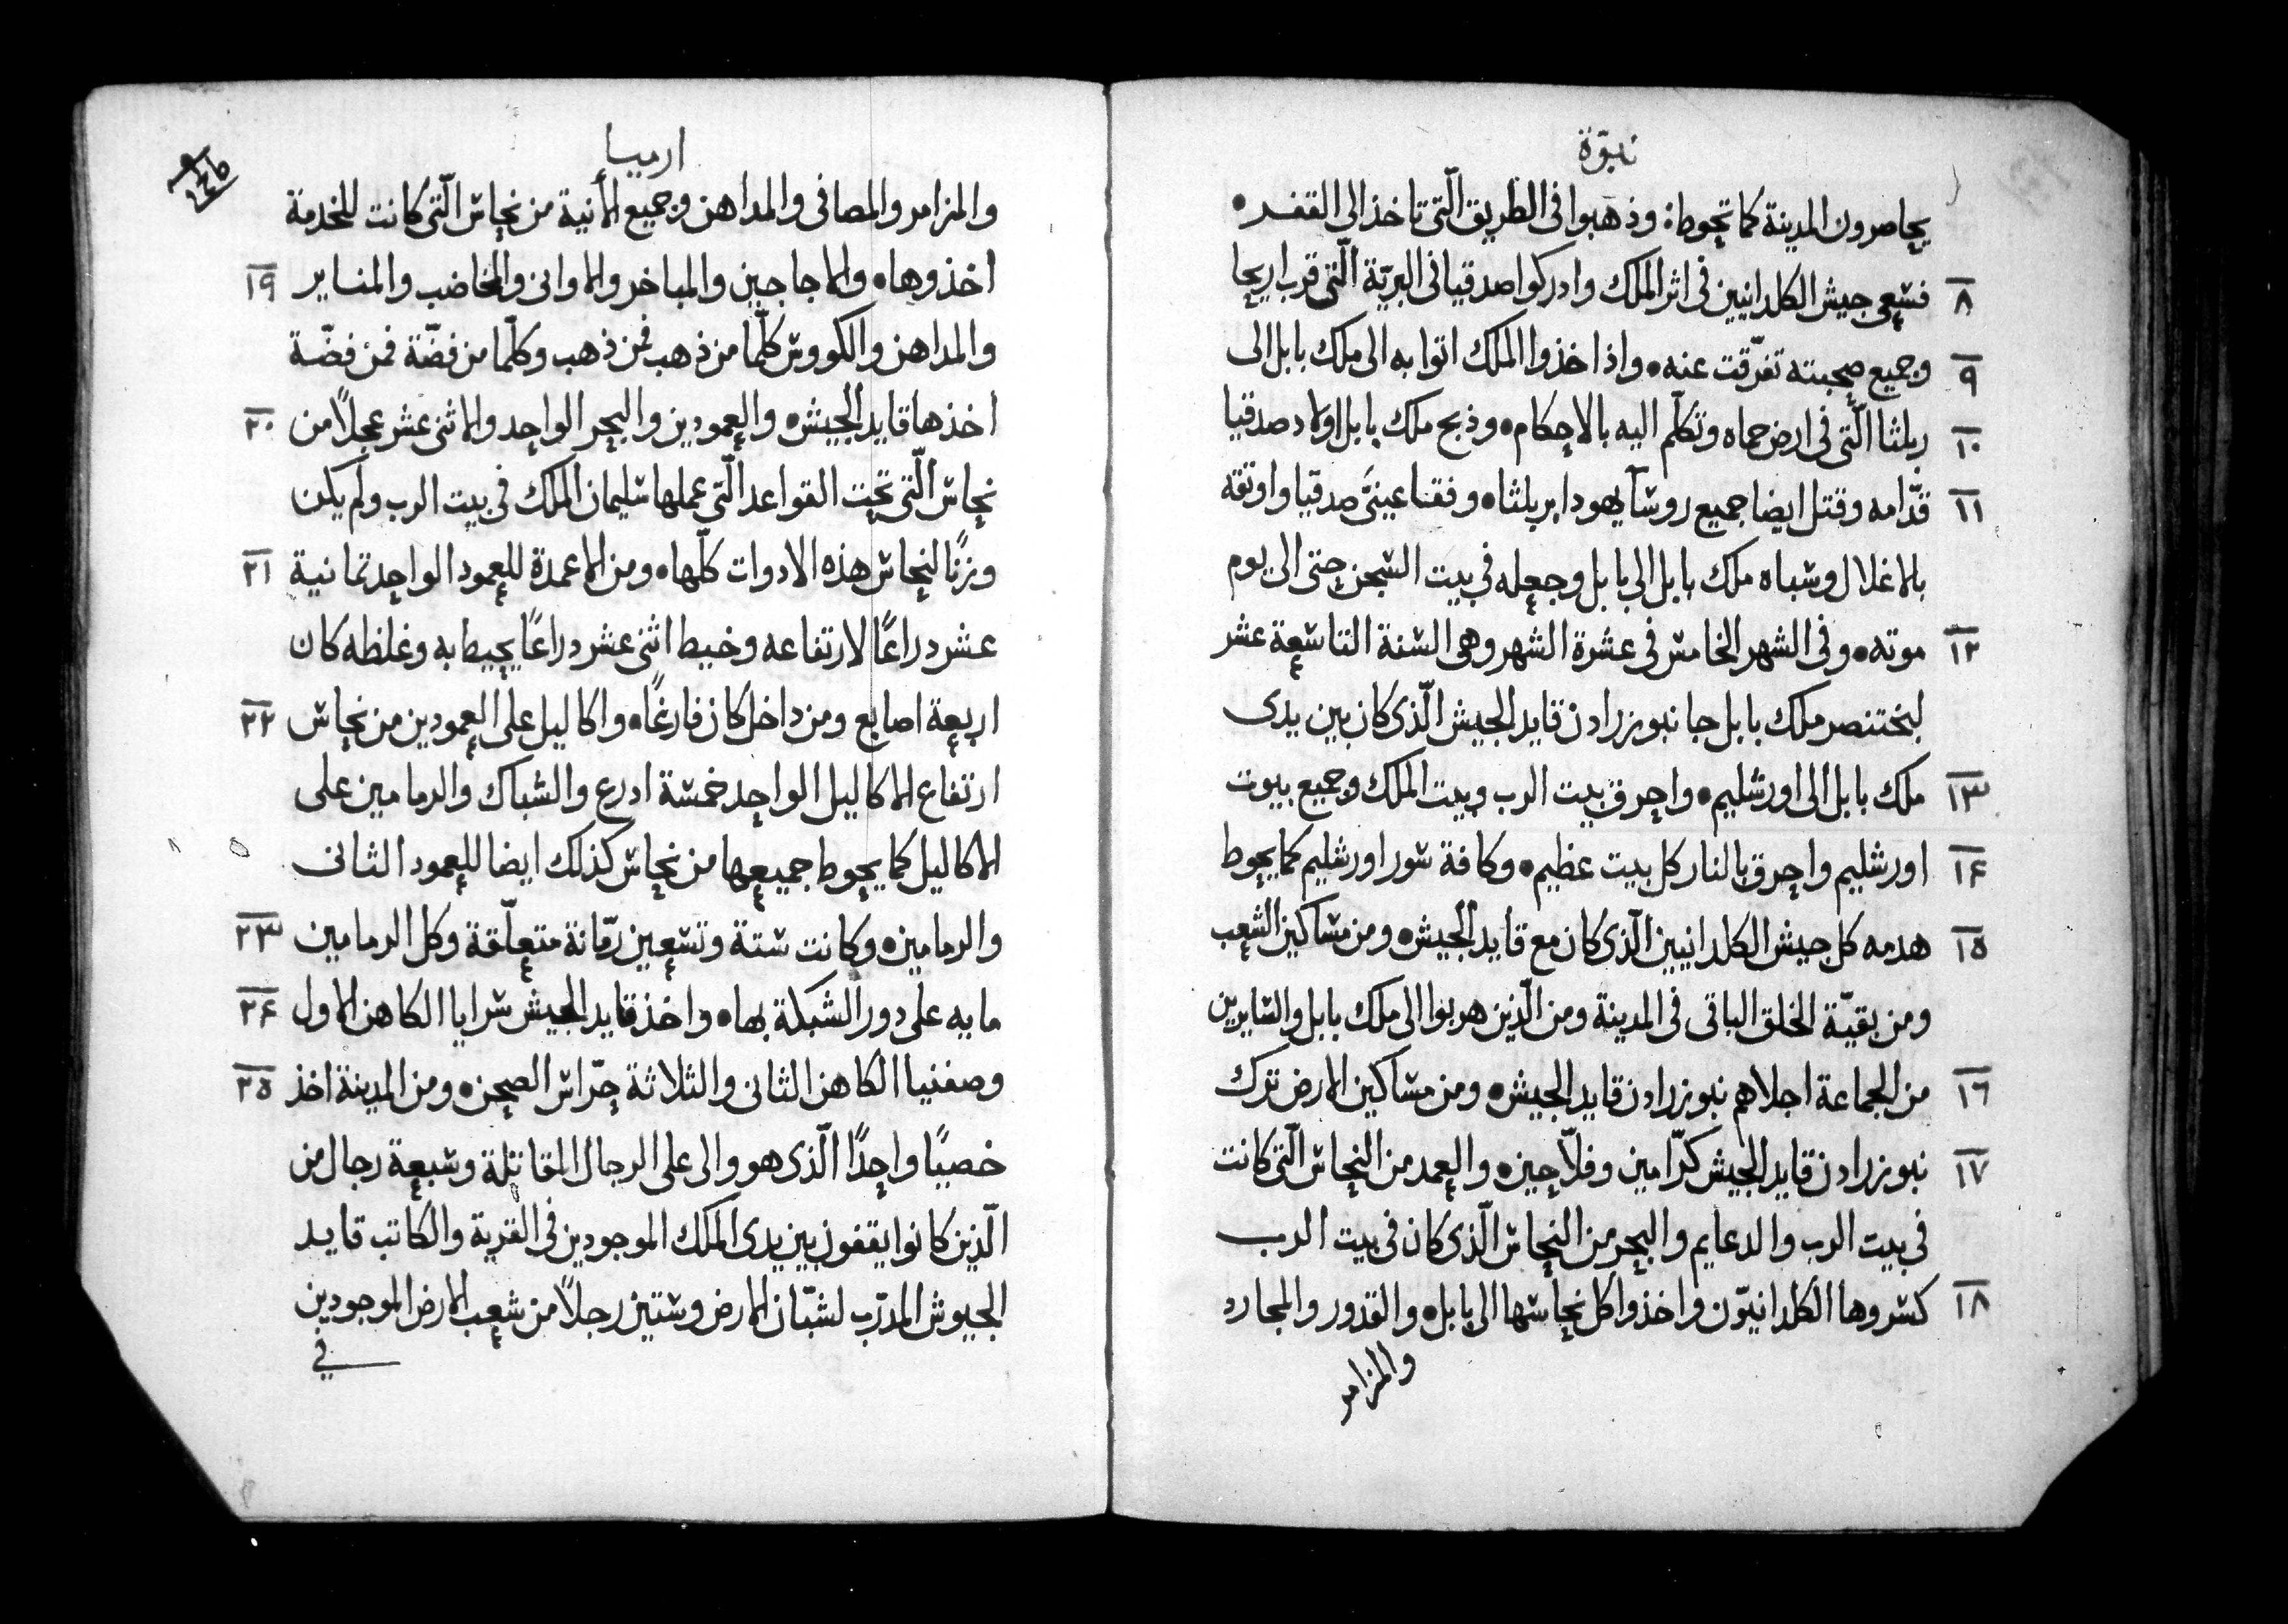 نبوّة
يحاصرون المدينة كما تحوط: وذهبوا فى الطريق الّتى تاخذ الى القفر •
٨ فسعى جيش الكلدانيين فى اثر الملك وادركوا صدقيا فى البريّة الّتى قرب اريحا
٩ وجميع صحبته تفرّقت عنه • واذ اخذوا الملك اتوا به الى ملك بابل الى
١٠ ربلثا الّتى فى ارض حماه وتكلّم اليه بالاحكام • وذبح ملك بابل اولاد صدقيا
١١ قدّامه وقتل ايضا جميع روسآ يهودا بربلثا • وفقا عينىَّ صدقيا واوثقه
بالاغلال وسباه ملك بابل الى بابل وجعله فى بيت السجن حتى الى يوم
١٢ موته • وفى الشهر الخامس فى عشرة الشهر وهى السنة التاسعة عشر
لبختنصر ملك بابل جا نبوزرادن قايد الجيش الّذى كان بين يدى
١٣ ملك بابل الى اورشليم • واحرق بيت الرب وبيت الملك وجميع بيوت
١۴ اورشليم واحرق بالنار كل بيت عظيم • وكافة سور اورشليم كما يحوط
١٥ هدمه كل جيش الكلدانيين الّذى كان مع قايد الجيش • ومن مساكين الشعب
ومن بقيّة الخلق الباقى فى المدينة ومن الّذين هربوا الى ملك بابل والسايرين
١٦ من الجماعة اجلاهم نبوزرادن قايد الجيش • ومن مساكين الارض ترك
١٧ نبوزرادن قايد الجيش كرّامين وفلّاحين • والعمد من النحاس الّتى كانت
فى بيت الرب والدعايم والبحر من النحاس الّذى كان فى بيت الرب
١٨ كسروها الكلدانيّون واخذوا كل نحاسها الى بابل • والقدور والمجارد
والمزامر
ارميا
والمزامر والمصافى والمداهن وجميع الأنية من نحاس الّتى كانت للخدمة
١٩ اخذوها • والاجاجين والمباخر والاوانى والمخاضب والمناير
والمداهن والكووس كلّما من ذهب فمن ذهب وكلّما من فضّة فمن فضّة
٢٠ اخذها قايد الجيش • والعمودين والبحر الواحد والاثنى عشر عجلًا من
نحاس الّتى تحت القواعد الّتى عملها سليمان الملك فى بيت الرب ولم يكن
٢١ وزنًا لنحاس هذه الادوات كلّها • ومن الاعمدة للعمود الواحد ثمانية
عشر دراعًا لارتفاعه وخيط اثنى عشر دراعًا يحيط به وغلظه كان
٢٢ اربعة اصابع ومن داخل كان فارغًا • واكاليل على العمودين من نحاس
ارتفاع الاكاليل الواحد خمسة ادرع والشباك والرمامين على
الاكاليل كما يحوط جميعها من نحاس كذلك ايضا للعمود الثانى
٢٣ والرمامين • وكانت ستة وتسعين رمّانة متعلّقة وكل الرمامين
٢۴ مايه على دور الشبكة بها • واخذ قايد الجيش سرايا الكاهن الاول
٢٥ وصفنيا الكاهن الثانى والثلاثة حرّاس الصحن • ومن المدينة اخذ
خصيًا واحدًا الّذى هو والى على الرجال المقاتلة وسبعة رجال من
الّذين كانوا يقفون بين يدى الملك الموجودين فى القرية والكاتب قايد
الجيوش المدرّب لشبّان الارض وستين رجلًا من شعب الارض الموجودين
فى